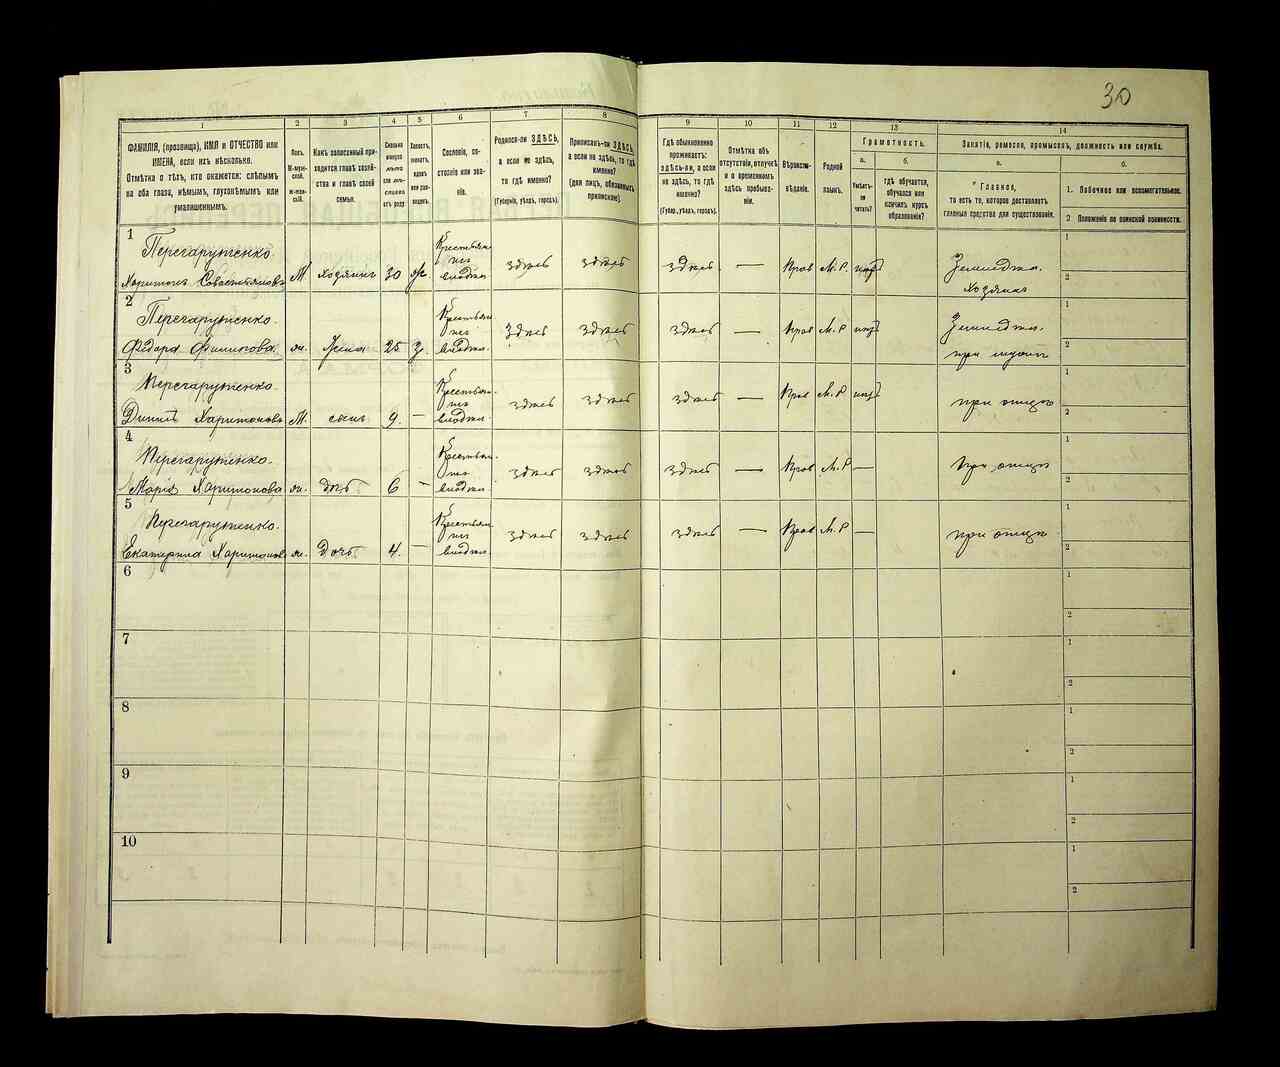 30
1 2 3 4 5 6 7 8 9 10 11 12 13 14
ФАМИЛІЯ, (прозвище), ИМЯ и ОТЧЕСТВО или
ИМЕНА, если ихъ нѣсколько.
Отмѣтка о тѣхъ, кто окажется: слѣпымъ
на оба глаза, нѣмымъ, глухонѣмымъ или
умалишеннымъ.
Полъ.
М-муж-
ской.
Ж-жен-
скій.
Какъ записанный при-
ходится главѣ хозяй-
ства и главѣ своей
семьи.
Сколько
минуло
лѣтъ
или мѣ-
сяцевъ
отъ роду
Холостъ,
женатъ,
вдовъ
или раз-
веденъ.
Сословіе, со-
стояніе или зва-
ніе.
Родился-ли ЗДѢСЬ,
а если не здѣсь,
то гдѣ именно?
(Губернія, уѣздъ, городъ).
Приписанъ-ли ЗДѢСЬ,
а если не здѣсь, то гдѣ
именно?
(для лицъ, обязанныхъ
припискою).
Гдѣ обыкновенно
проживаетъ:
здѣсь-ли, а если
не здѣсь, то гдѣ
именно?
(Губер., уѣздъ, городъ).
Отмѣтка объ
отсутствіи, отлучкѣ
и о временномъ
здѣсь пребыва-
ніи.
Вѣроиспо-
вѣданіе.
Родной
языкъ.
Грамотность.
а.
Умѣетъ-
ли
читать?
б.
гдѣ обучается,
обучался или
кончилъ курсъ
образованія?
Занятіе, ремесло, промыселъ, должность или служба.
а.
Главное,
то есть то, которое доставляетъ
главныя средства для существованія.
б.
1. Побочное или вспомогательное.
2 Положеніе по воинской повинности.
1
Перегаруженко
Харитонъ Севастьяновъ М хозяинъ 30 ж Крестьян здѣсь здѣсь здѣсь — Прав М.Р.
Хозяинъ
1
2
2
Перегаруженко
Ѳедора Филипова ж. жена 25 з Крестьян здѣсь здѣсь здѣсь — Прав М.Р
при мужѣ
1
2
3
Перегаруженко
Данилъ Харитоновъ М. сынъ 9. — Крестьян здѣсь здѣсь здѣсь — Прав М.Р
при отцѣ
1
2
4
Перегаруженко
Марія Харитонова ж. дочь 6 — Крестьян здѣсь здѣсь здѣсь — Прав М.Р —
при отцѣ
1
2
5
Перегаруженко
Екатерина Харитонов ж. Дочь 4. — Крестьян здѣсь здѣсь здѣсь — Прав М.Р —
при отцѣ
1
2
6
1
2
7
1
2
8
1
2
9
1
2
10
1
2